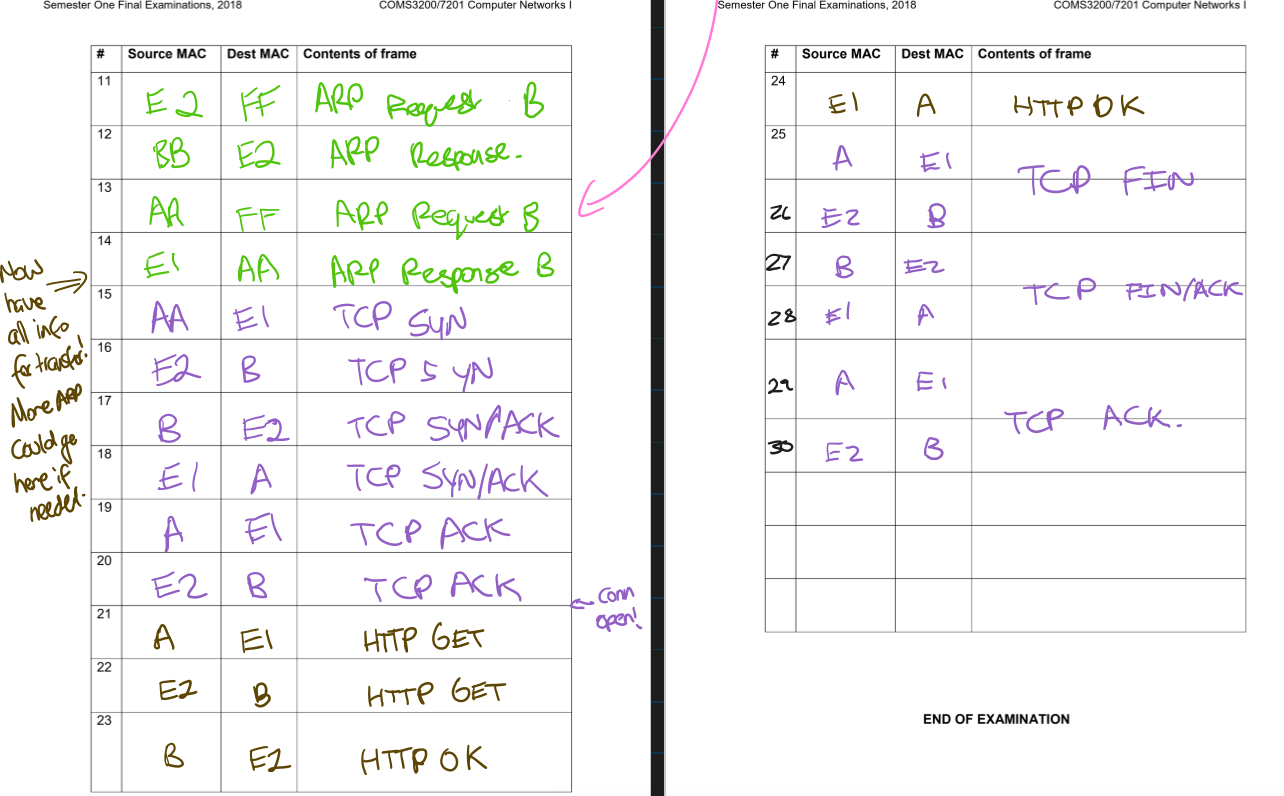 Semester One Final Examinations, 2018 COMS3200/7201 Computer Networks I
# Source MAC Dest MAC Contents of frame
11 E2 FF ARP Request B
12 BB E2 ARP Response.
13 AA FF ARP Request B
14 E1 AA ARP Response B
15 AA E1 TCP SYN
16 E2 B TCP SYN
17 B E2 TCP SYN/ACK
18 E1 A TCP SYN/ACK
19 A E1 TCP ACK
20 E2 B TCP ACK
21 A E1 HTTP GET
22 E2 B HTTP GET
23 B E2 HTTP OK
Now
have
all info
for transfer!
More ARP
could go
here if
needed.
conn
open!
Semester One Final Examinations, 2018 COMS3200/7201 Computer Networks I
# Source MAC Dest MAC Contents of frame
24 E1 A HTTP OK
25 A E1
TCP FIN
26 E2 B
27 B E2
TCP FIN/ACK
28 E1 A
29 A E1
TCP ACK.
30 E2 B
END OF EXAMINATION